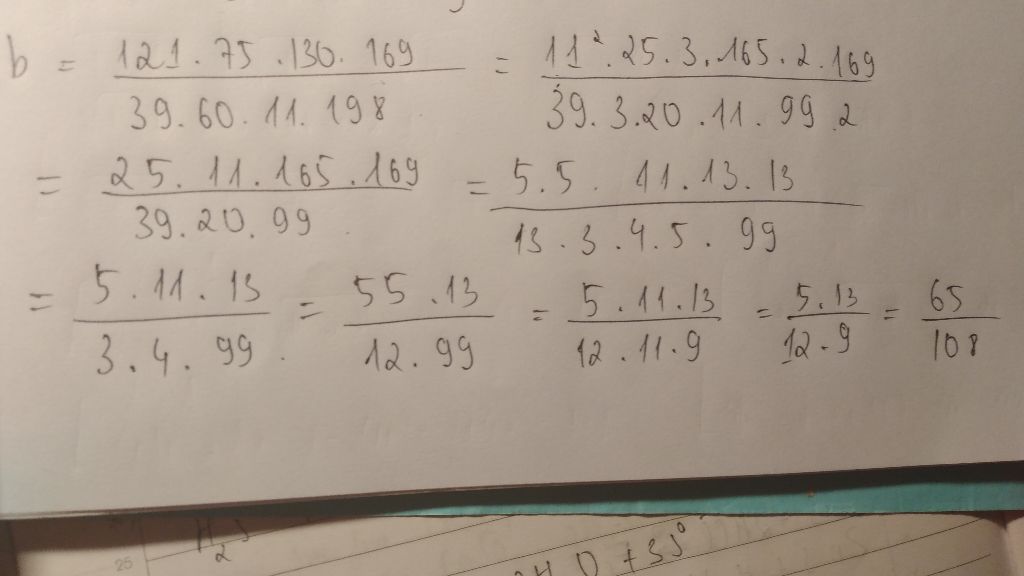 b = 121 . 75 . 130 . 169 / 39 . 60 . 11 . 198 = 11² . 25 . 3 . 165 . 2 . 169 / 39 . 3 . 20 . 11 . 99 . 2
= 25 . 11 . 165 . 169 / 39 . 20 . 99 = 5 . 5 . 11 . 13 . 13 / 13 . 3 . 4 . 5 . 99
= 5 . 11 . 13 / 3 . 4 . 99 = 55 . 13 / 12 . 99 = 5 . 11 . 13 / 12 . 11 . 9 = 5 . 13 / 12 . 9 = 65 / 108
25